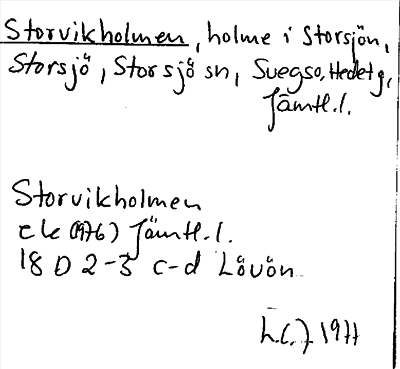 Storvikholmen, holme i Storsjön,
Storsjö, Storsjö sn, Svegs o. Hede tg,
Jämtl. l.
Storvikholmen
ek (1976) Jämtl. l.
18 D 2-3 c-d Lövön
1977